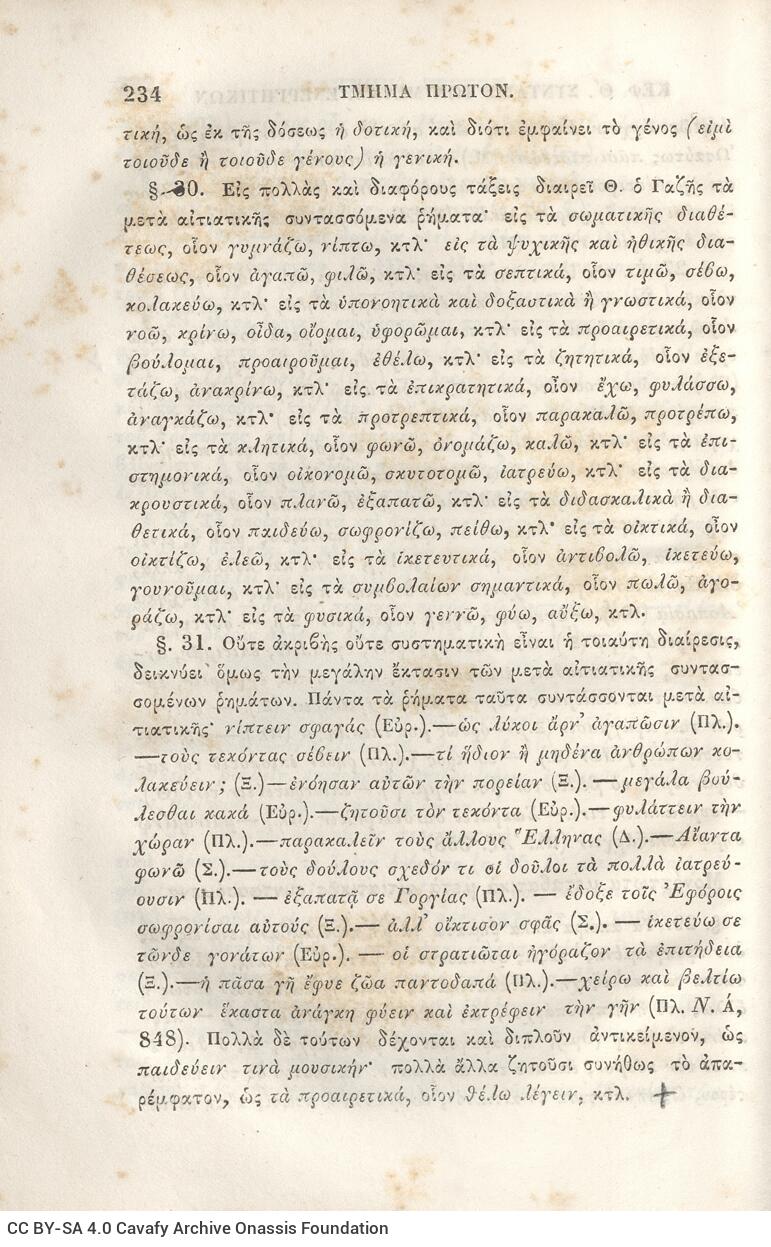 234 ΤΜΗΜΑ ΠΡΩΤΟΝ.
τική, ὡς ἐκ τῆς δόσεως ἡ δοτική, καὶ διότι ἐμφαίνει τὸ γένος (εἰμὶ
τοιοῦδε ἢ τοιοῦδε γένους) ἡ γενική.
§. 30. Εἰς πολλὰς καὶ διαφόρους τάξεις διαιρεῖ Θ. ὁ Γαζῆς τὰ
μετὰ αἰτιατικῆς συντασσόμενα ῥήματα· εἰς τὰ σωματικῆς διαθέ-
τεως, οἷον γυμνάζω, νίπτω, κτλ· εἰς τὰ ψυχικῆς καὶ ἠθικῆς δια-
θέσεως, οἷον ἀγαπῶ, φιλῶ, κτλ· εἰς τὰ σεπτικά, οἷον τιμῶ, σέβω,
κολακεύω, κτλ· εἰς τὰ ὑπονοητικὰ καὶ δοξαστικὰ ἢ γνωστικά, οἷον
νοῶ, κρίνω, οἶδα, οἴομαι, ὑφορῶμαι, κτλ· εἰς τὰ προαιρετικά, οἷον
βούλομαι, προαιροῦμαι, ἐθέλω, κτλ· εἰς τὰ ζητητικά, οἷον ἐξε-
τάζω, ἀνακρίνω, κτλ· εἰς τὰ ἐπικρατητικά, οἷον ἔχω, φυλάσσω,
ἀναγκάζω, κτλ· εἰς τὰ προτρεπτικά, οἷον παρακαλῶ, προτρέπω,
κτλ· εἰς τὰ κλητικά, οἷον φωνῶ, ὀνομάζω, καλῶ, κτλ· εἰς τὰ ἐπι-
στημονικά, οἷον οἰκονομῶ, σκυτοτομῶ, ἰατρεύω, κτλ· εἰς τὰ δια-
κρουστικά, οἷον πλανῶ, ἐξαπατῶ, κτλ· εἰς τὰ διδασκαλικὰ ἢ δια-
θετικά, οἷον παιδεύω, σωφρονίζω, πείθω, κτλ· εἰς τὰ οἰκτικά, οἷον
οἰκτίζω, ἐλεῶ, κτλ· εἰς τὰ ἱκετευτικά, οἷον ἀντιβολῶ, ἱκετεύω,
γουνοῦμαι, κτλ· εἰς τὰ συμβολαίων σημαντικά, οἷον πωλῶ, ἀγο-
ράζω, κτλ· εἰς τὰ φυσικά, οἷον γεννῶ, φύω, αὔξω, κτλ.
§. 31. Οὔτε ἀκριβὴς οὔτε συστηματικὴ εἶναι ἡ τοιαύτη διαίρεσις,
δεικνύει ὅμως τὴν μεγάλην ἔκτασιν τῶν μετὰ αἰτιατικῆς συντασ-
σομένων ῥημάτων. Πάντα τὰ ῥήματα ταῦτα συντάσσονται μετὰ αἰ-
τιατικῆς· νίπτειν σφαγάς (Εὐρ.).—ὡς λύκοι ἄρν' ἀγαπῶσιν (Πλ.).
—τοὺς τεκόντας σέβειν (Πλ.).—τί ἥδιον ἢ μηδένα ἀνθρώπων κο-
λακεύειν; (Ξ.)—ἐνόησαν αὐτῶν τὴν πορείαν (Ξ.).—μεγάλα βού-
λεσθαι κακά (Εὐρ.).—ζητοῦσι τὸν τεκόντα (Εὐρ.).—φυλάττειν τὴν
χώραν (Πλ.).—παρακαλεῖν τοὺς ἄλλους Ἕλληνας (Δ.).—Αἴαντα
φωνῶ (Σ.).—τοὺς δούλους σχεδόν τι οἱ δοῦλοι τὰ πολλὰ ἰατρεύ-
ουσιν (Πλ.). — ἐξαπατᾷ σε Γοργίας (Πλ.). — ἔδοξε τοῖς Ἐφόροις
σωφρονίσαι αὐτούς (Ξ.).— ἀλλ' οἴκτισον σφᾶς (Σ.). — ἱκετεύω σε
τῶνδε γονάτων (Εὐρ.). — οἱ στρατιῶται ἠγόραζον τὰ ἐπιτήδεια
(Ξ.).—ἡ πᾶσα γῆ ἔφυε ζῶα παντοδαπά (Πλ.).—χείρω καὶ βελτίω
τούτων ἕκαστα ἀνάγκη φύειν καὶ ἐκτρέφειν τὴν γῆν (Πλ. Ν. Ά,
848). Πολλὰ δὲ τούτων δέχονται καὶ διπλοῦν ἀντικείμενον, ὡς
παιδεύειν τινὰ μουσικήν· πολλὰ ἄλλα ζητοῦσι συνήθως τὸ ἀπα-
ρέμφατον, ὡς τὰ προαιρετικά, οἷον θέλω λέγειν, κτλ. +
CC BY-SA 4.0 Cavafy Archive Onassis Foundation